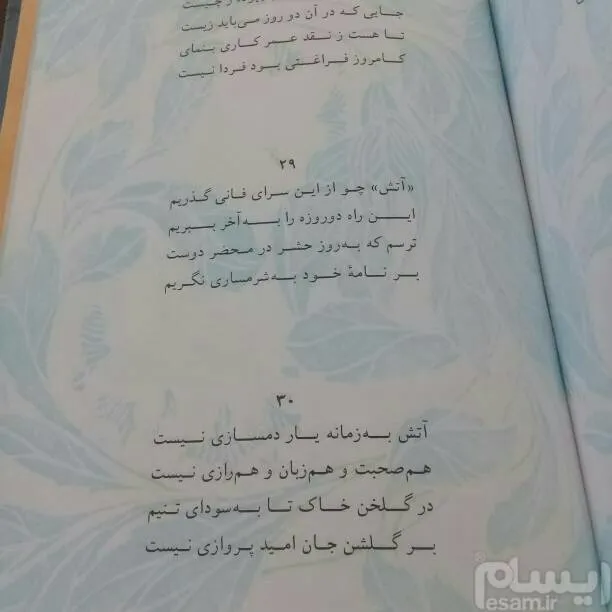 جایی که در آن دو روز می‌باید زیست
تا هست ز نقد عمر کاری بنمای
کامروز فراغتی بود فردا نیست
۲۹
«آتش» چو از این سرای فانی گذریم
این راه دوروزه را به‌آخر ببریم
ترسم که به‌روز حشر در محضر دوست
بر نامهٔ خود به‌شرمساری نگریم
۳۰
آتش به‌زمانه یار دمسازی نیست
هم‌صحبت و هم‌زبان و هم‌رازی نیست
در گلخن خاک تا به‌سودای تنیم
بر گلشن جان امید پروازی نیست
ایسام
esam.ir